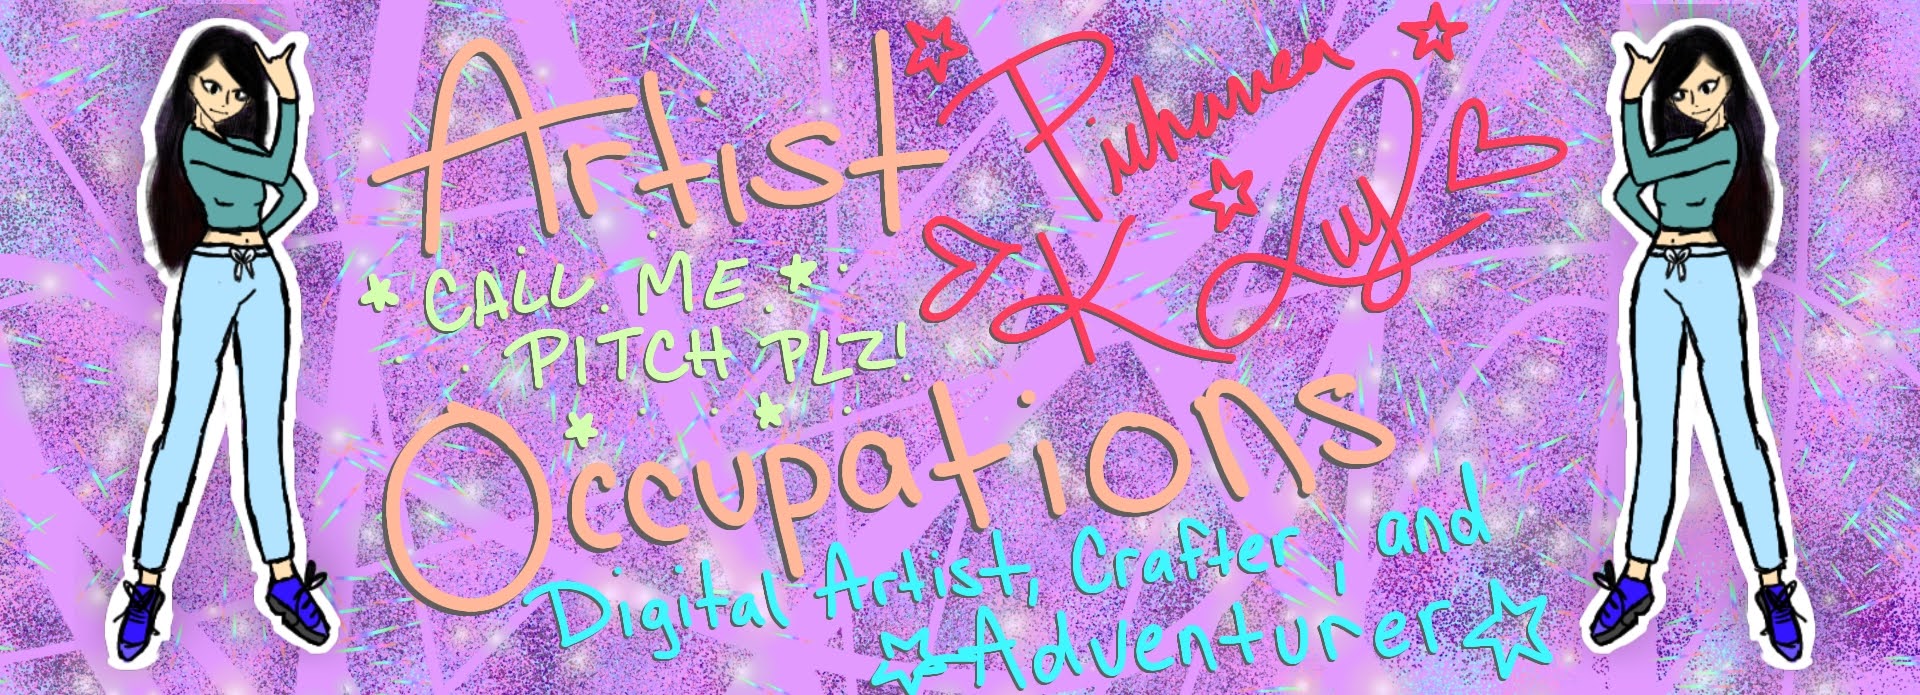 Artist
CALL ME
PITCH PLZ!
K Luy
Occupations
Digital Artist, Crafter, and
Adventurer